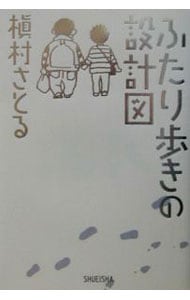 ふたり歩きの
設計図
槇村さとる
SHUEISHA